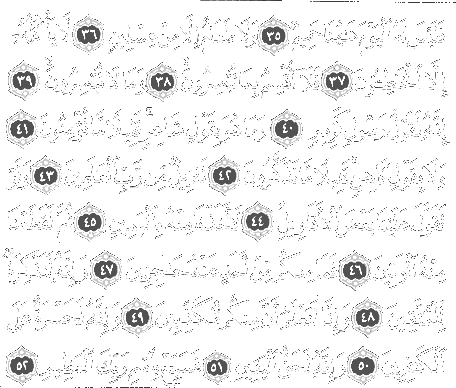 فَلَيْسَ لَهُ الْيَوْمَ هَاهُنَا حَمِيمٌ ٣٥ وَلَا طَعَامٌ إِلَّا مِنْ غِسْلِينٍ ٣٦ لَا يَأْكُلُهُ
إِلَّا الْخَاطِئُونَ ٣٧ فَلَا أُقْسِمُ بِمَا تُبْصِرُونَ ٣٨ وَمَا لَا تُبْصِرُونَ ٣٩
إِنَّهُ لَقَوْلُ رَسُولٍ كَرِيمٍ ٤٠ وَمَا هُوَ بِقَوْلِ شَاعِرٍ قَلِيلًا مَا تُؤْمِنُونَ ٤١
وَلَا بِقَوْلِ كَاهِنٍ قَلِيلًا مَا تَذَكَّرُونَ ٤٢ تَنْزِيلٌ مِنْ رَبِّ الْعَالَمِينَ ٤٣ وَلَوْ
تَقَوَّلَ عَلَيْنَا بَعْضَ الْأَقَاوِيلِ ٤٤ لَأَخَذْنَا مِنْهُ بِالْيَمِينِ ٤٥ ثُمَّ لَقَطَعْنَا
مِنْهُ الْوَتِينَ ٤٦ فَمَا مِنْكُمْ مِنْ أَحَدٍ عَنْهُ حَاجِزِينَ ٤٧ وَإِنَّهُ لَتَذْكِرَةٌ
لِلْمُتَّقِينَ ٤٨ وَإِنَّا لَنَعْلَمُ أَنَّ مِنْكُمْ مُكَذِّبِينَ ٤٩ وَإِنَّهُ لَحَسْرَةٌ عَلَى
الْكَافِرِينَ ٥٠ وَإِنَّهُ لَحَقُّ الْيَقِينِ ٥١ فَسَبِّحْ بِاسْمِ رَبِّكَ الْعَظِيمِ ٥٢